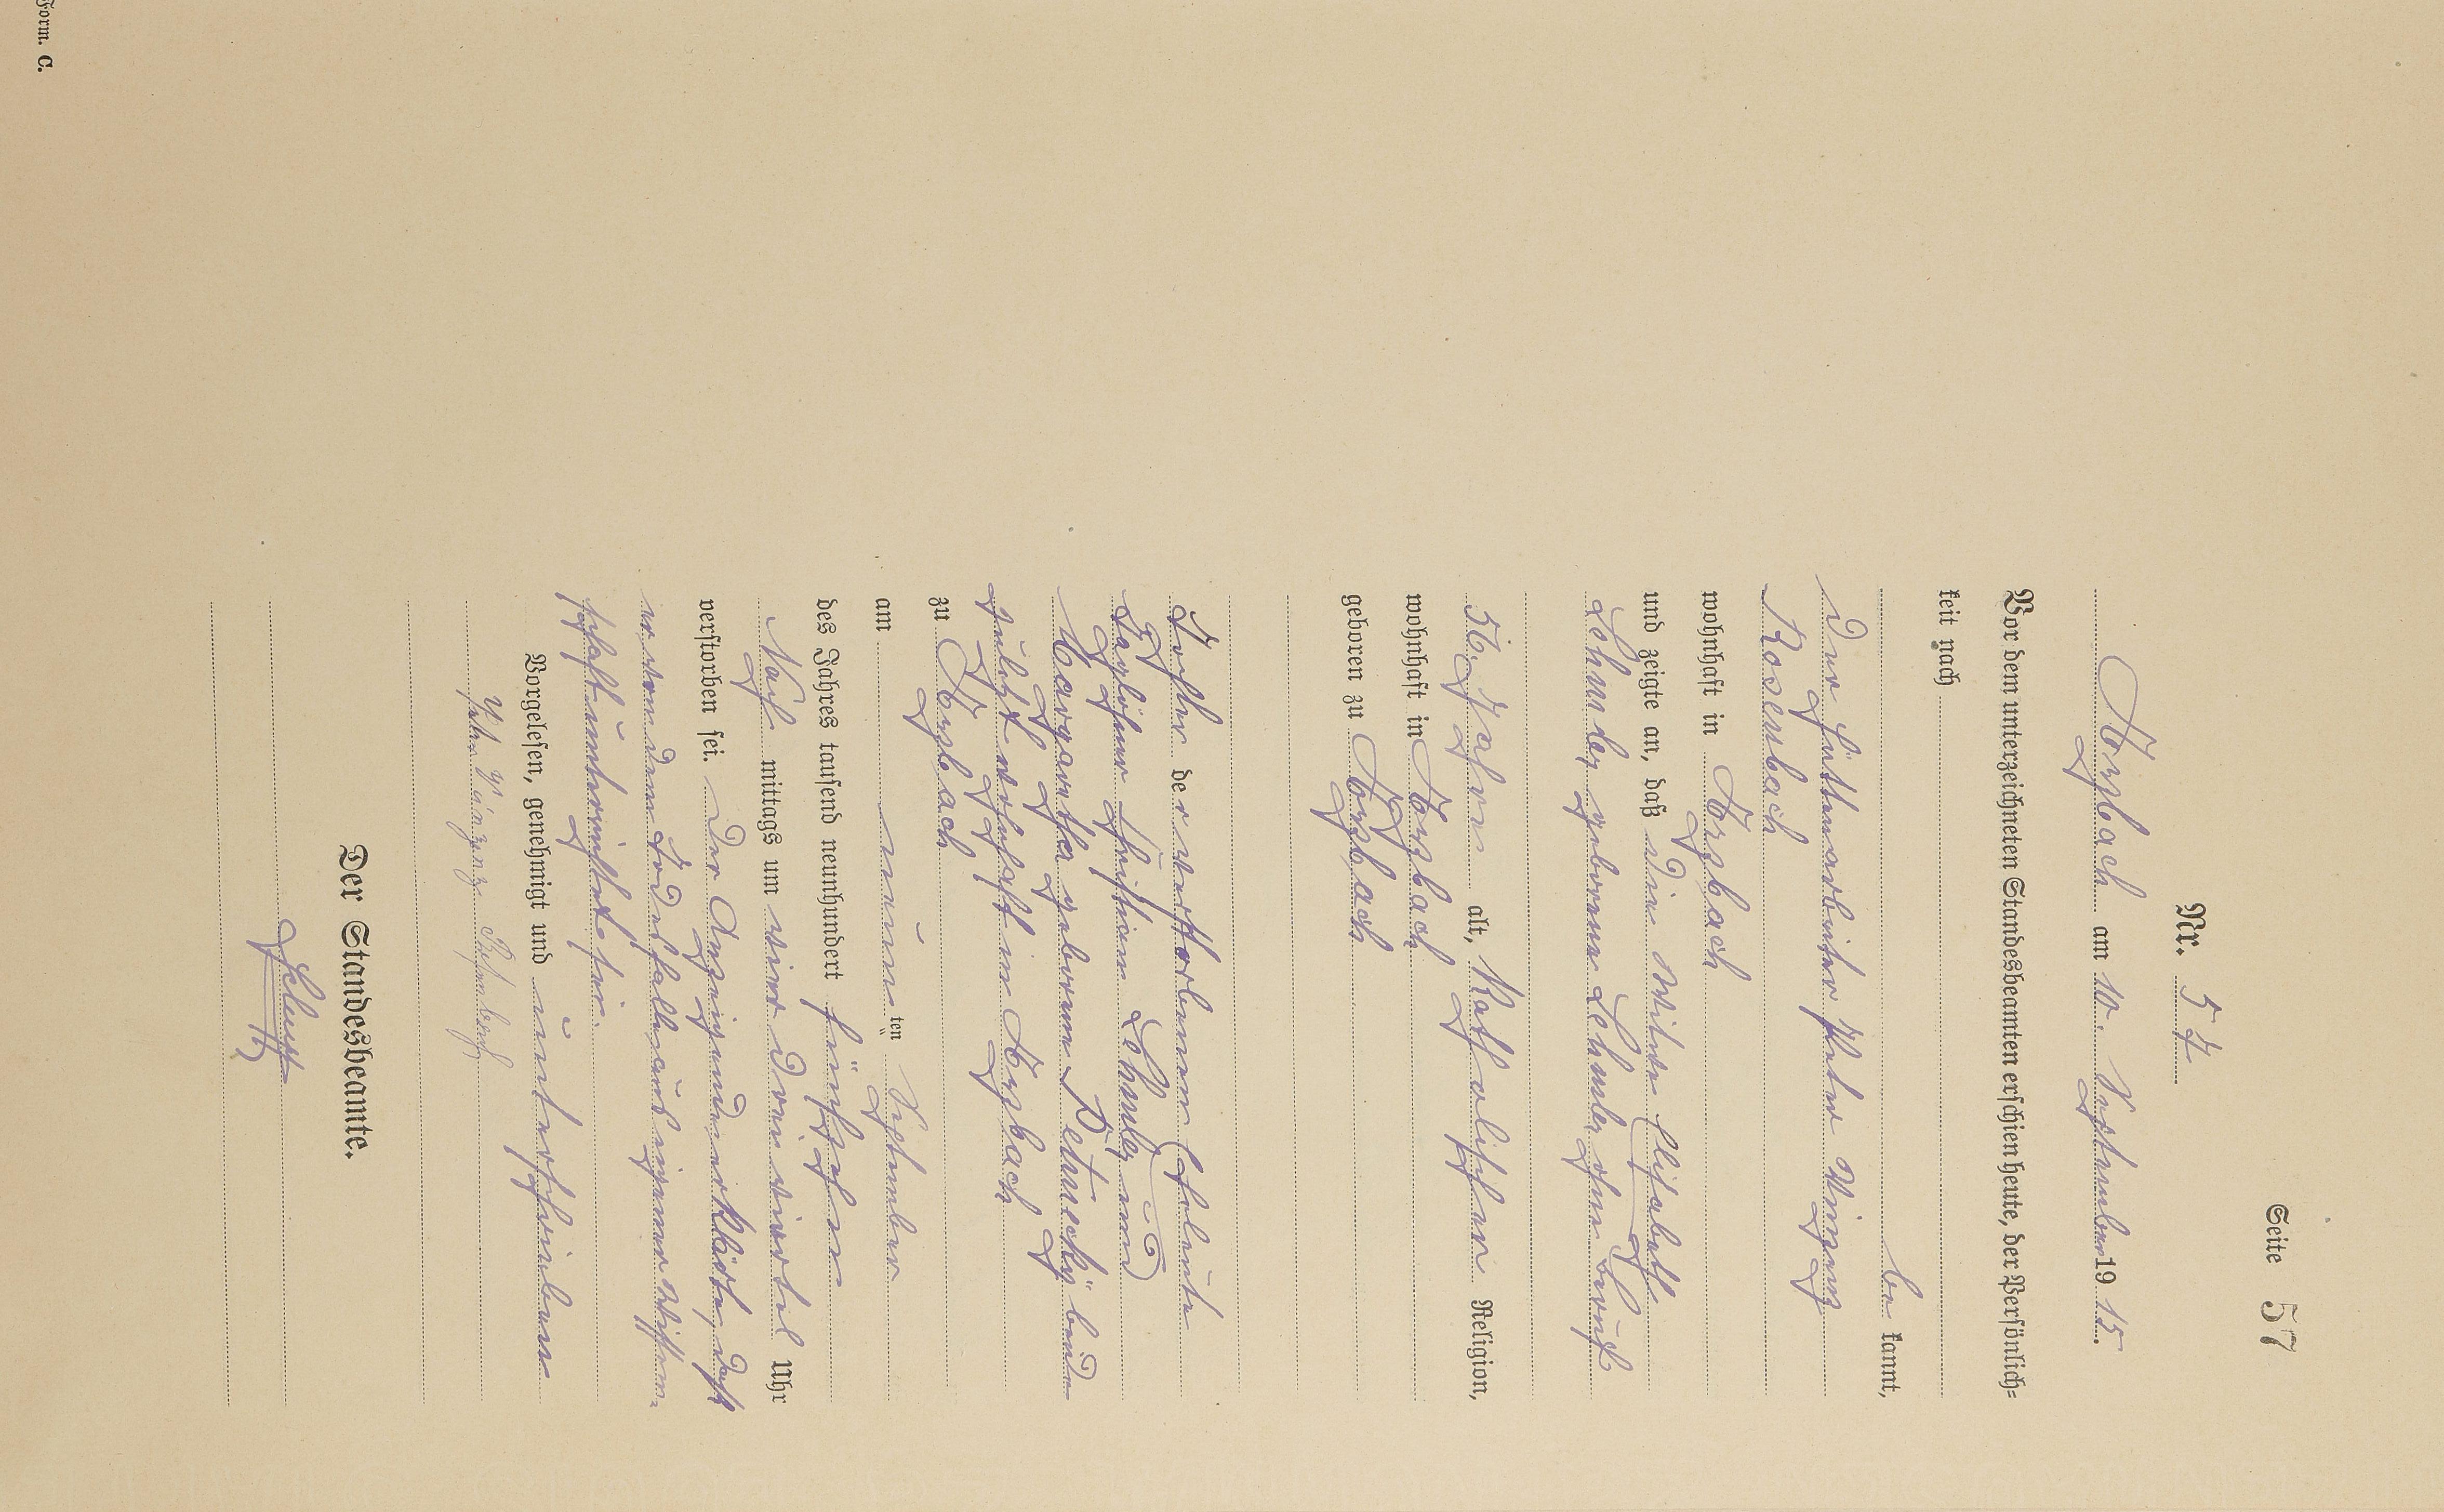 Seite 57
Nr. 57
Arzbach am 10. September 1915.
Vor dem unterzeichneten Standesbeamten erschien heute, der Persönlich=
keit nach
be kannt,
der Hüttenarbeiter Peter Vinzenz
Rosenbach
wohnhaft in Arzbach
und zeigte an, daß die Witwe Elisabeth
Lehmler geborene Lehmler ohne Beruf
56 Jahre alt, Katholischer Religion,
wohnhaft in Arzbach
geboren zu Arzbach
Tochter der verstorbenen Eheleute
Taglöhner Christian Lehmler und
Margaretha geborene beide
zuletzt wohnhaft in Arzbach
zu Arzbach
am neun ten September
des Jahres tausend neunhundert fünfzehn
Nach mittags um vier drei viertel Uhr
verstorben sei. Der Anzeigende erklärte, daß
er von dem Todesfalle aus eigener Wissen=
schaft unterrichtet sei.
Vorgelesen, genehmigt und unterschrieben
Peter Vinzenz Rosenbach
Der Standesbeamte.
Form. C.